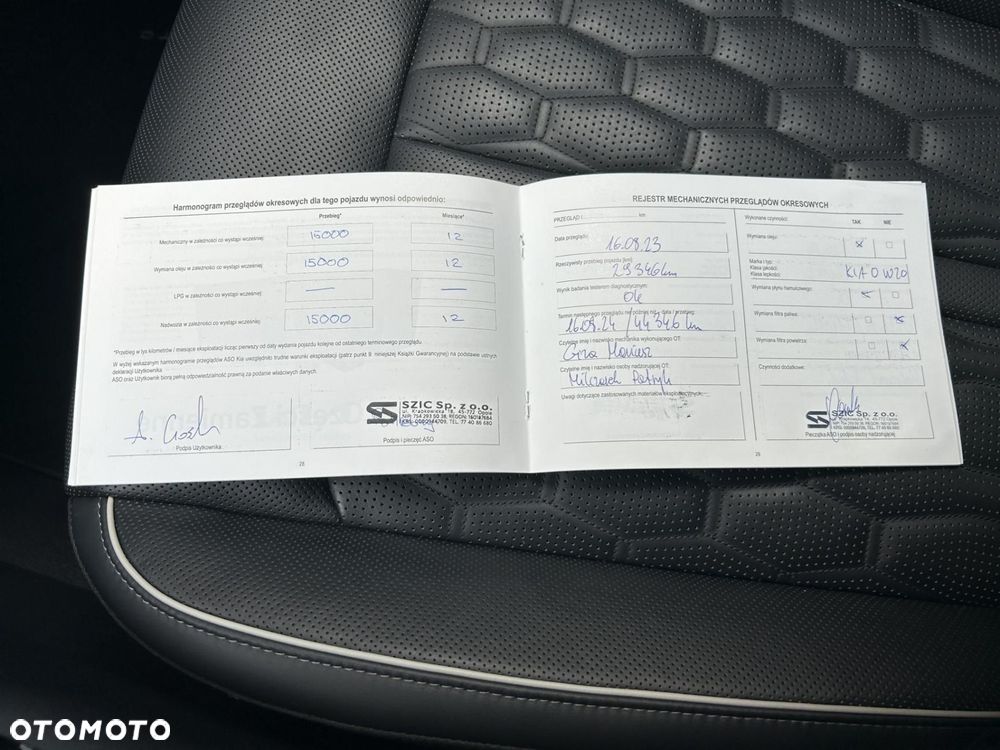 Harmonogram przeglądów okresowych dla tego pojazdu wynosi odpowiednio:
Przebieg* Miesiące*
Mechaniczny w zależności co wystąpi wcześniej 15000 12
Wymiana oleju w zależności co wystąpi wcześniej 15000 12
LPG w zależności co wystąpi wcześniej — —
Nadwozia w zależności co wystąpi wcześniej 15000 12
*Przebieg w tys kilometrów / miesiące eksploatacji licząc pierwszy od daty wydania pojazdu kolejne od ostatniego terminowego przeglądu.
W wyżej wskazanym harmonogramie przeglądów ASO Kia uwzględniło trudne warunki eksploatacji (patrz punkt 8 niniejszej Książki Gwarancyjnej) na podstawie ustnych
deklaracji Użytkownika
ASO oraz Użytkownik biorą pełną odpowiedzialność prawną za podanie właściwych danych
SZIC Sp. z o.o.
ul. Krapkowicka 18, 45-772 Opole
NIP: 754 293 50 38, REGON: 160187684
KRS: 0000944709, TEL. 77 40 86 680
Podpis Użytkownika
Podpis i pieczęć ASO
28
REJESTR MECHANICZNYCH PRZEGLĄDÓW OKRESOWYCH
PRZEGLĄD / km
Data przeglądu: 16.08.23
Rzeczywisty przebieg pojazdu [km]: 29346 km
Wynik badania testerem diagnostycznym: Ok
Termin następnego przeglądu nie później niż, data / przebieg:
16.08.24 / 44346 km
Czytelne imię i nazwisko mechanika wykonującego OT:
Czytelne imię i nazwisko osoby nadzorującej OT:
Uwagi dotyczące zastosowanych materiałów eksploatacyjnych:
Wykonane czynności: TAK NIE
Wymiana oleju: x
Marka i typ:
Klasa jakości:
Klasa lepkości:
KIA 0W20
Wymiana płynu hamulcowego: x
Wymiana filtra paliwa: x
Wymiana filtra powietrza: x
Czynności dodatkowe:
SZIC Sp. z o.o.
ul. Krapkowicka 18, 45-772 Opole
NIP: 754 293 50 38, REGON: 160187684
KRS: 0000944709, TEL. 77 40 86 680
Pieczątka ASO i podpis osoby nadzorującej
29
OTOMOTO